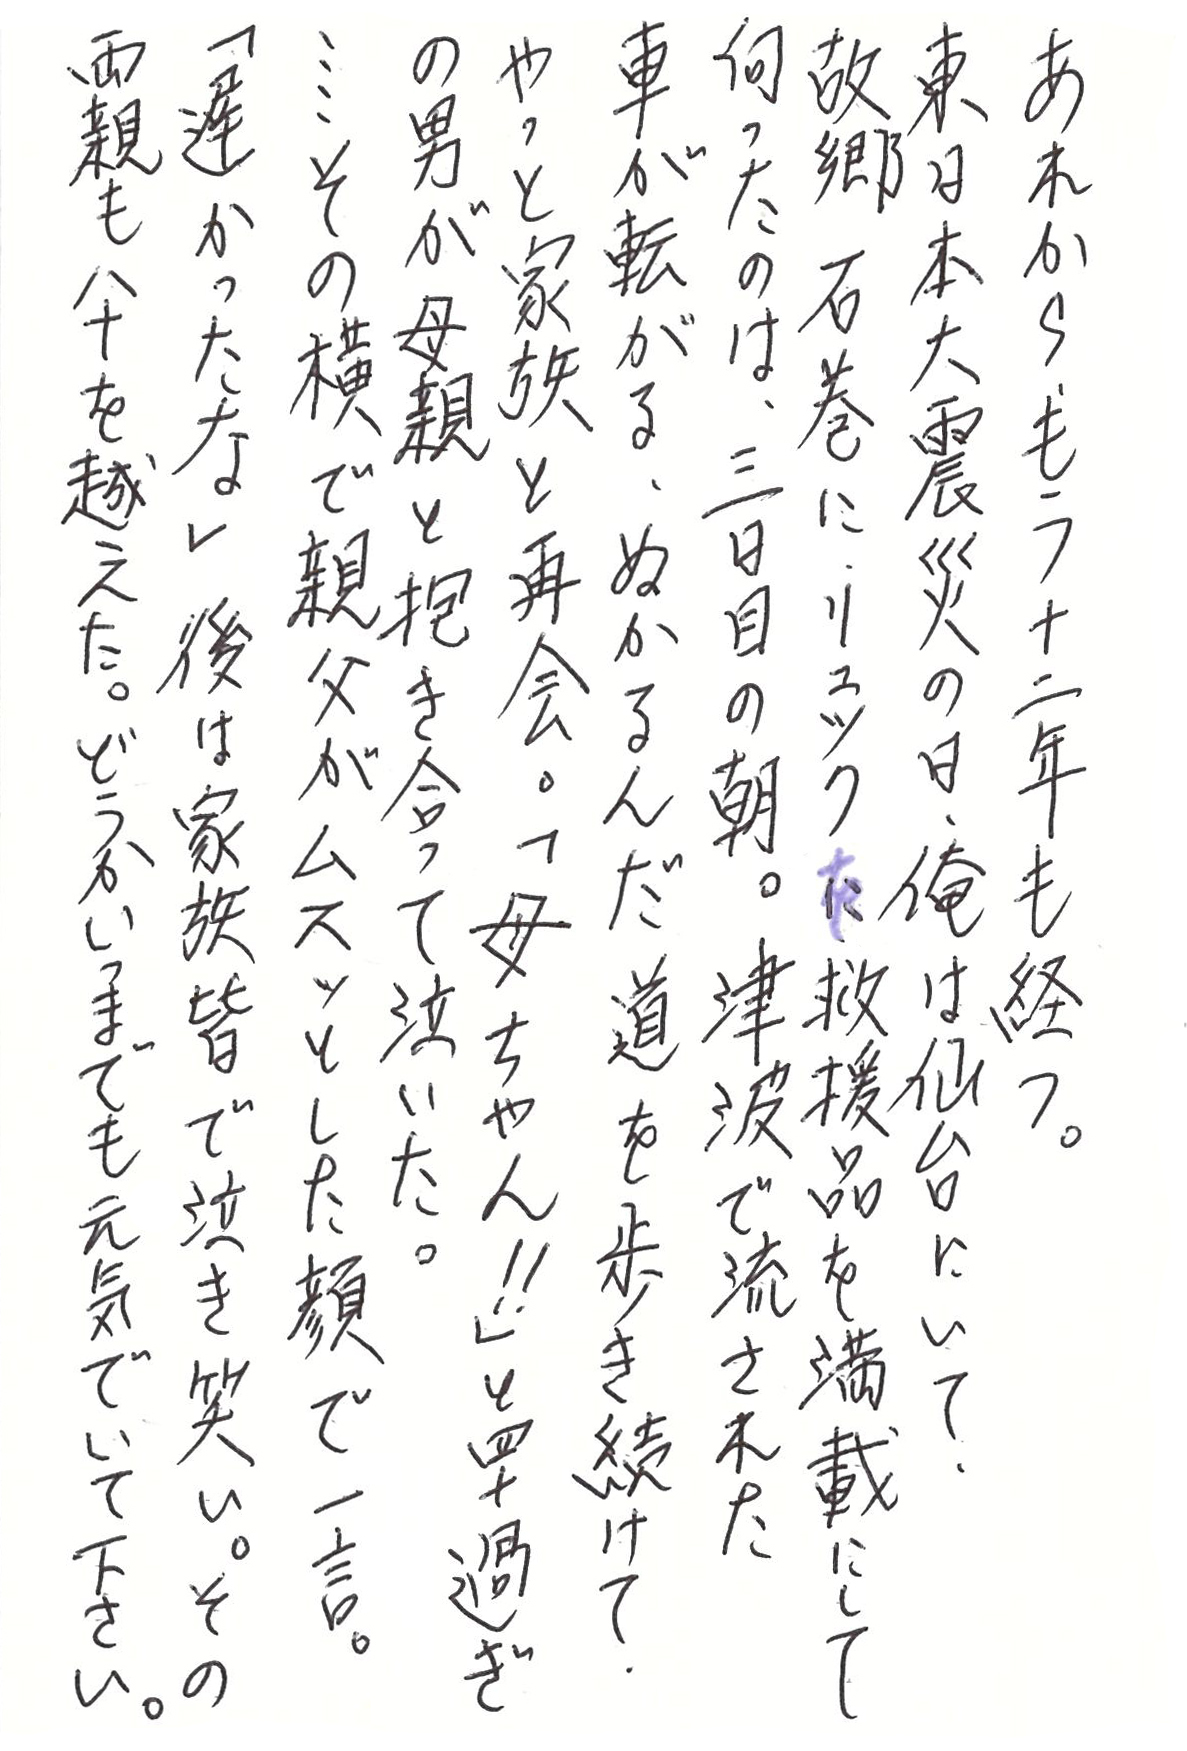 あれから、もう十二年も経つ。
東日本大震災の日、俺は仙台にいて、
故郷 石巻に、リュックに救援品を満載にして
向ったのは、三日目の朝。津波で流された
車が転がる、ぬかるんだ道を歩き続けて、
やっと家族と再会。「母ちゃん!!」と四十過ぎ
の男が母親と抱き合って泣いた。
……その横で親父がムスッとした顔で一言。
「遅かったな」後は家族皆で泣き笑い。その
両親も八十を越えた。どうかいつまでも元気でいて下さい。